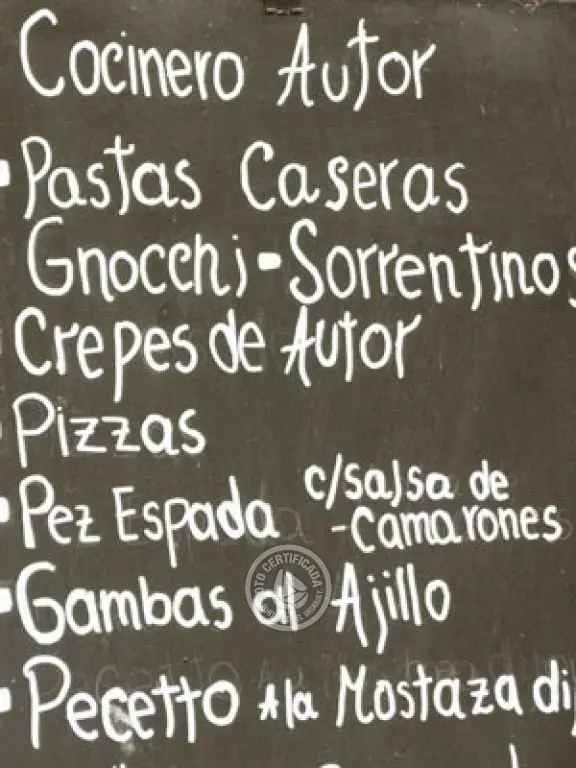 Cocinero Autor
Pastas Caseras
Gnocchi - Sorrentinos
Crepes de Autor
Pizzas
Pez Espada c/salsa de
- camarones
Gambas al Ajillo
Pecetto A la Mostaza
FOTO CERTIFICADA